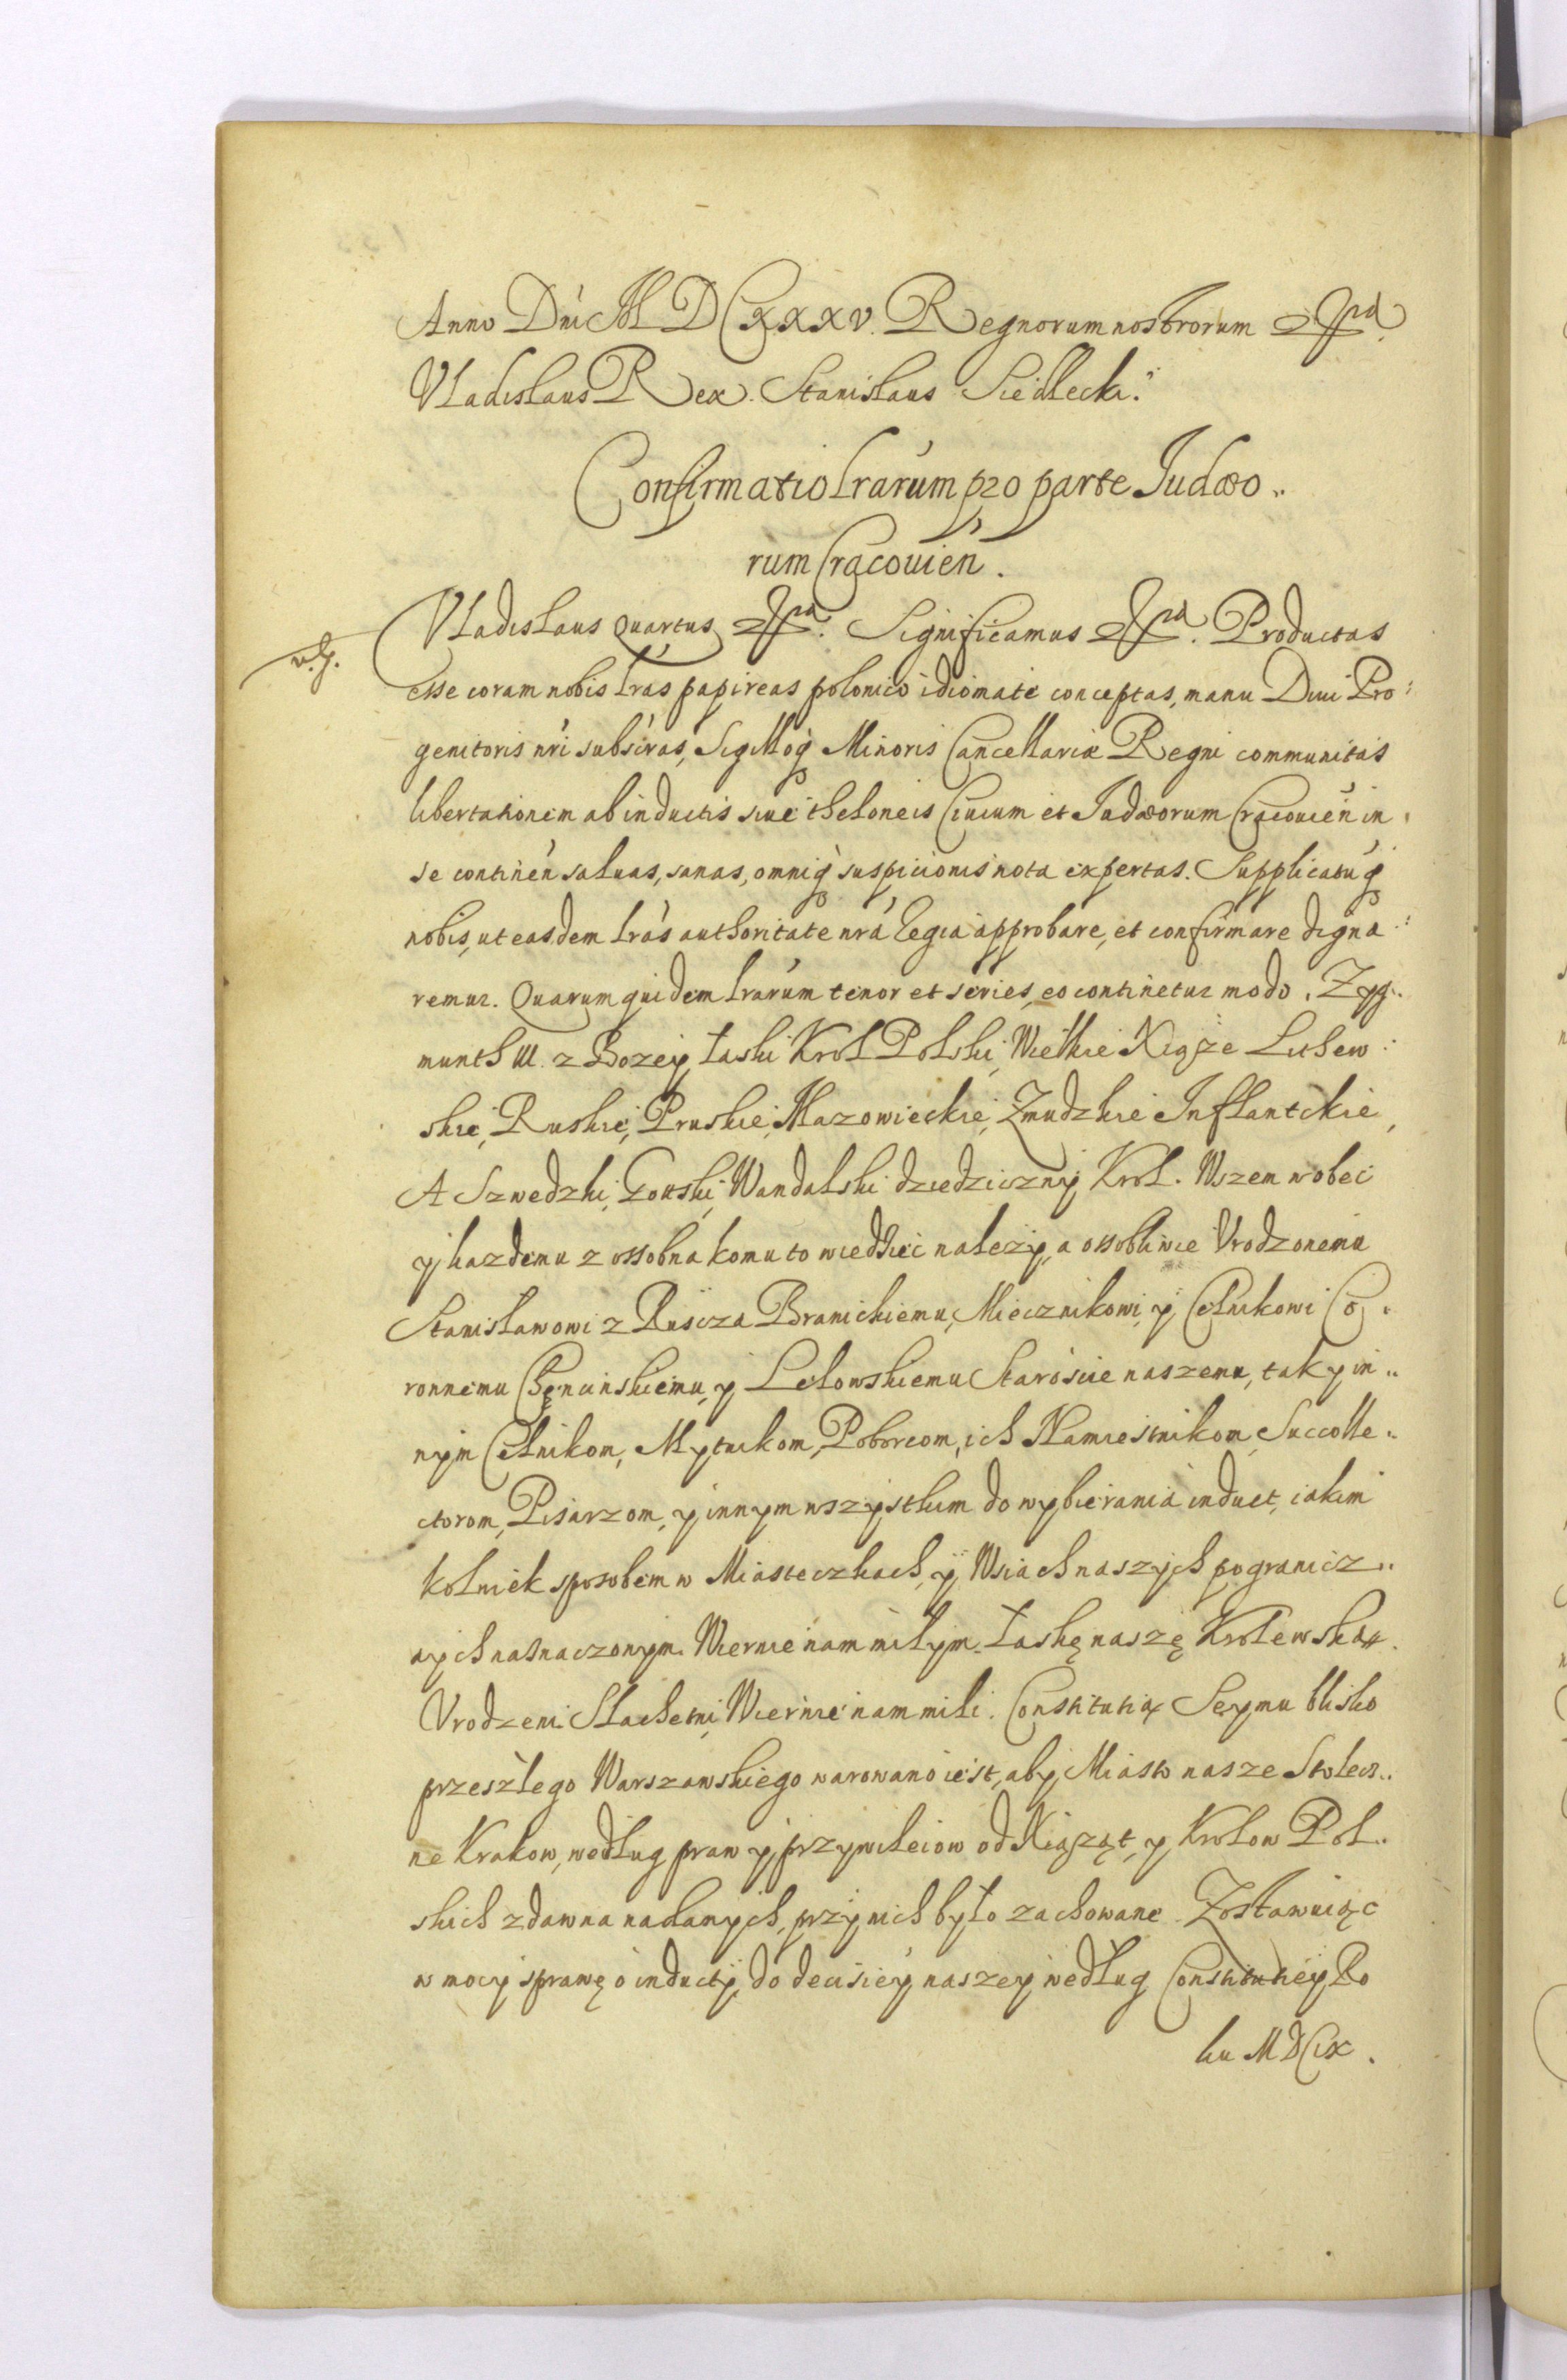 Anno Dni MDCXXXV. Regnorum nostrorum
Vladislaus Rex. Stanislaus Siedlecki.
Confirmatio Lrarum pro parte Judæo..
rum Cracouien.
Vladislaus Quartus Significamus Productas
esse coram nobis Lras papireas polonico idiomate conceptas, manu Diui Pro:
genitoris nri subscras, Sigilloq Minoris Cancellariæ Regni communitas
libertationem ab inductis siue theloneis Ciuium et Judæorum Cracouien in
se continen saluas, sanas, omniq suspicionis nota expertas. Supplicatuq
nobis, ut easdem Lras authoritate nra Regia approbare, et confirmare digna:
remur. Quarum quidem Lrarum tenor et series, eo continetur modo. Zyg..
munth III. z Bozey Łaski Krol Polski, Wielkie Xiąże Lithew:
skie, Ruskie, Pruskie, Mazowieckie, Zmudzkie Inflantckie,
A Szwedzki, Gottski, Wandalski dziedziczny Krol. Wszem wobec
y kazdemu z ossobna komu to wiedziec nalezy, a ossobliwie Vrodzonemu
Stanisławowi z Ruscza Branickiemu, Miecznikowi, y Celnikowi Co.
ronnemu Chęncinskiemu, y Lelowskiemu Staroscie naszemu, tak y in..
nym Celnikom, Mytnikom, Poborcom, ich Namiestnikom, Succolle..
ctorom, Pisarzom, y innym wszystkim do wybierania induct, iakim
kolwiek sposobem w Miasteczkach, y Wsiach naszych pogranicz..
nych naznaczonym. Wiernie nam miłym. Łaskę naszę Krolewską.
Vrodzeni Slachetni, Wiernie nam mili. Constitutią Seymu blisko
przeszłego Warszawskiego warowano iest, aby Miasto nasze Stolecz..
ne Krakow, według praw y przywileiow od Xiążąt, y Krolow Pol.
skich zdawna nadanych, przy nich było zachowane. Zostawuiąc
w mocy sprawę o inducty, do decisiey naszey według Constitutiey Ro
ku MDCIX.